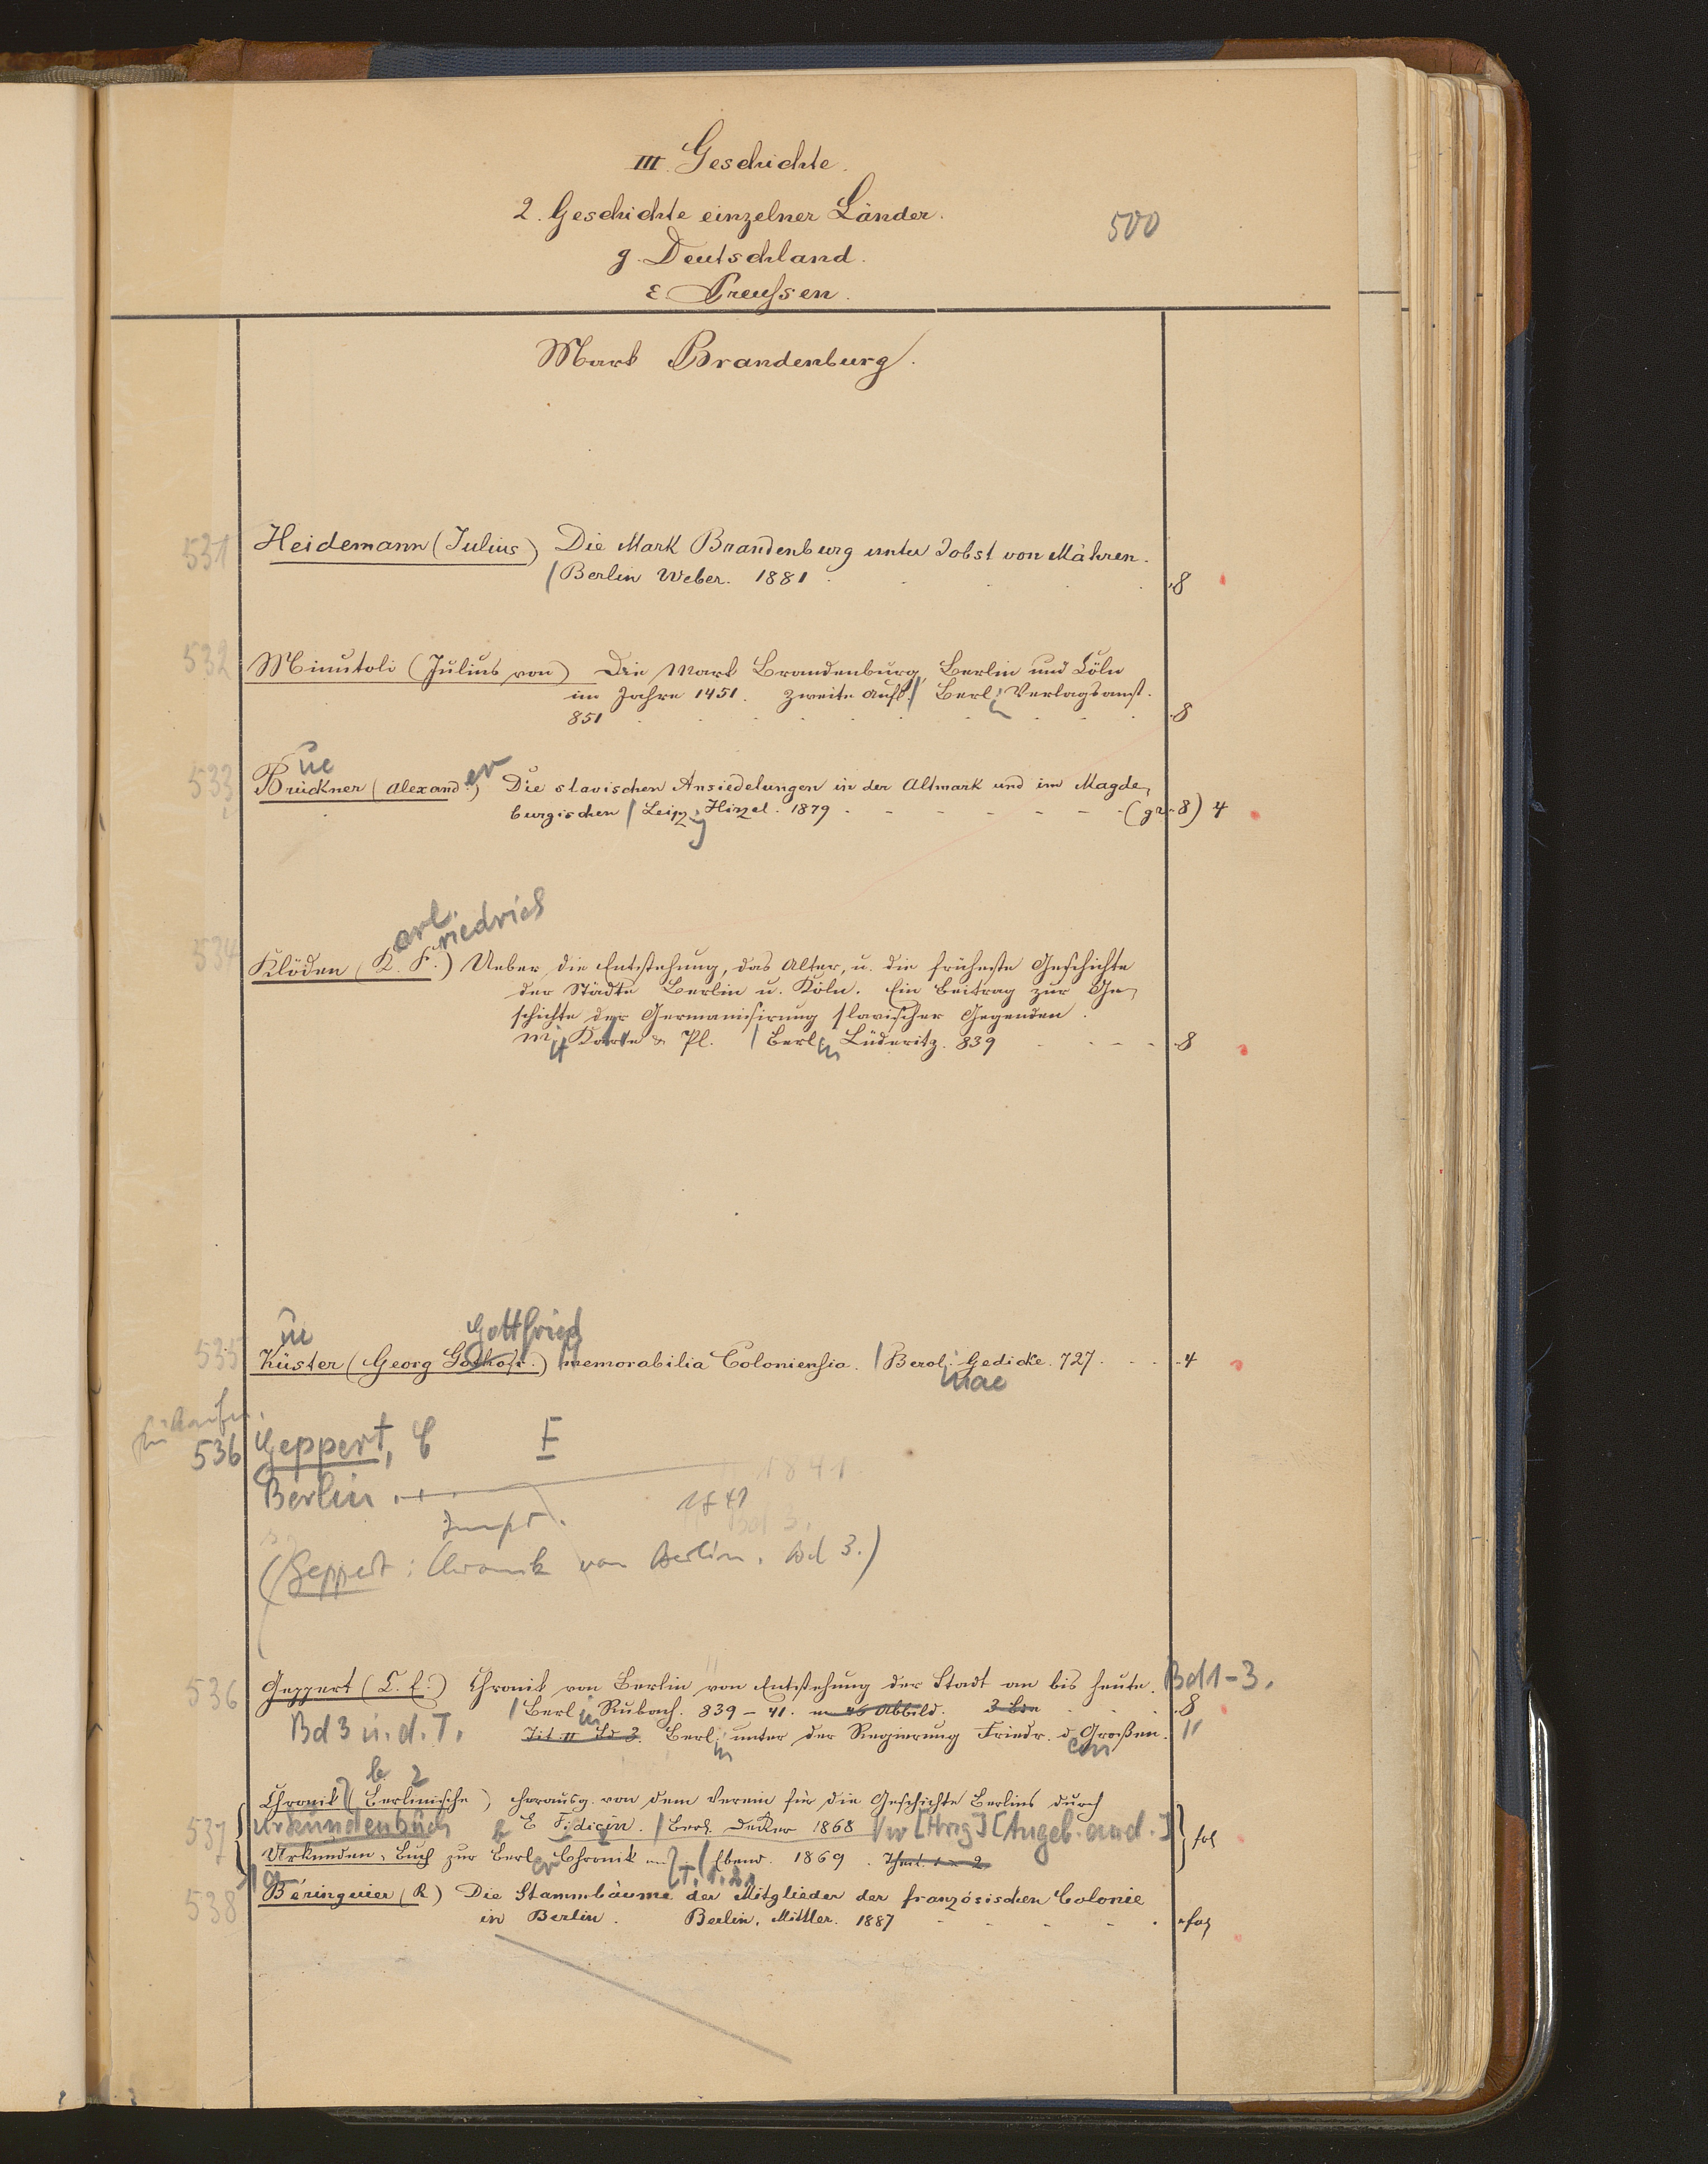 III. Geschichte.
2. Geschichte einzelner Länder.
500
g. Deutschland.
ε. Preußen.
Mark Brandenburg.
531 Heidemann (Julius) Die Mark Brandenburg unter Jobst von Mähren.
/ Berlin Weber. 1881 . 8
532 Minutoli (Julius von) Die Mark Brandenburg, Berlin und Cöln
im Jahre 1451. Zweite Aufl. / Berlin Verlagsanst.
851 . 8
ue
533 Brückner (Alexander) Die slavischen Ansiedelungen in der Altmark und im Magde-
burgischen / Leipzg Hirzel. 1879 (gr. 8) 4
arl riedrich
534 Klöden (K. F.) Ueber die Entstehung, das Alter, u. die früheste Geschichte
der Städte Berlin u. Köln. Ein Beitrag zur Ge-
schichte der Germanisirung slavischer Gegenden.
mit Karte & Pl. / Berlin Lüderitz. 839 8
ue Gottfried
535 Küster (Georg Gothofr.) Memorabilia Coloniensia. / Berol. Gedicke. 727. 4
inae
536 Geppert, C E
Berlin 1841
1841
Bd 3.
(Geppert: Chronik von Berlin. Bd 3.)
536 Geppert (C. E.) Chronik von Berlin von Entstehung der Stadt an bis heute. Bd 1-3.
/ Berlin Rubach. 839 – 41. m 46 Abbild. 3 Bde 8
Bd 3 u. d. T. Tit. II Bd 3. Berlin unter der Regierung Friedr. d Großen. "
b 2
Chronik (Berlinische) herausg. von dem Verein für die Geschichte Berlins durch
537 Urkundenbuch E Fidicin. / Berl. Decker 1868 [Hrsg] [Angeb. and.] fol
Urkunden-Buch zur Berl. Chronik / Ebend. 1869. Theil. 1 u 2.
T. 1. 2.
538 Béringuier (R) Die Stammbäume der Mitglieder der französischen Colonie
in Berlin. Berlin, Mittler. 1887 fol